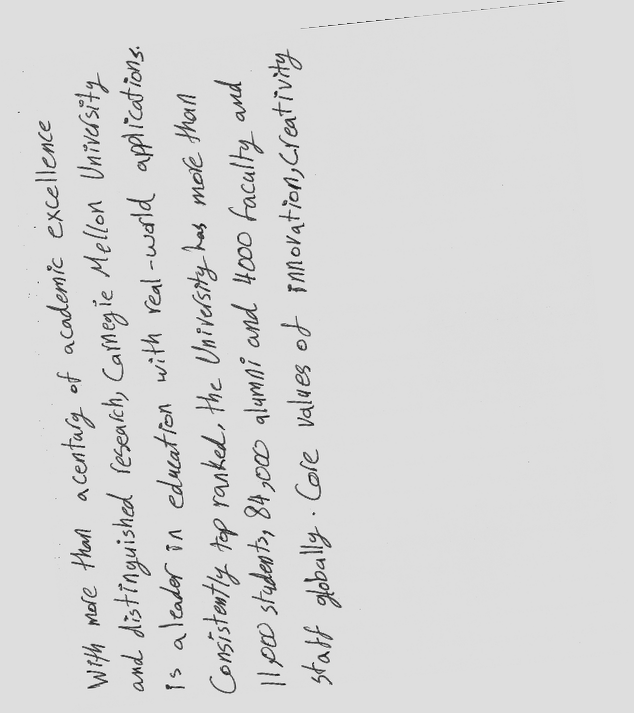 With more than a century of academic excellence
and distinguished research, Carnegie Mellon University
is a leader in education with real-world applications.
Consistently top ranked, the University has more than
11,000 students, 84,000 alumni and 4000 faculty and
staff globally. Core values of innovation, creativity